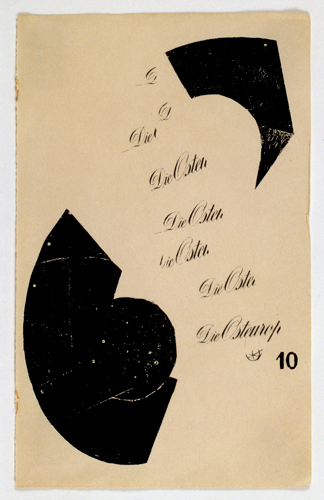 D
D
Die
Die Osten
Die Osten
Die Osten
Die Oster
Die Osteurop
10